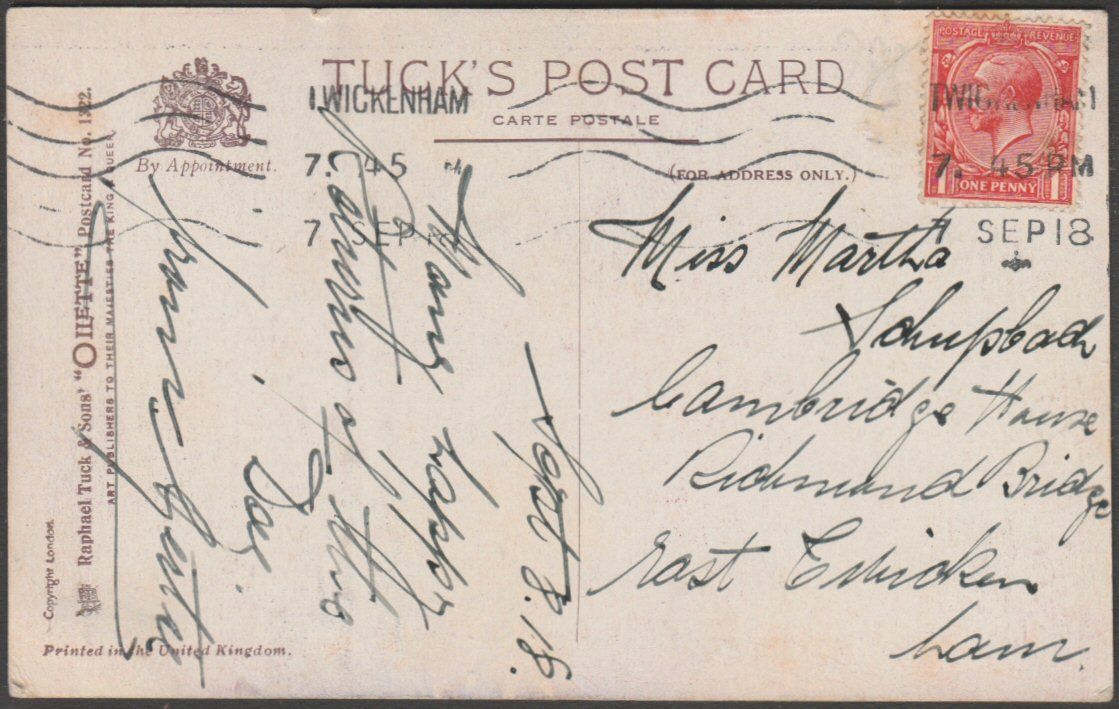 TUCK'S POST CARD
CARTE POSTALE
(FOR ADDRESS ONLY.)
By Appointment.
POSTAGE REVENUE
1 ONE PENNY 1
TWICKENHAM
7. 45 PM
7 SEP 18
TWICKENHAM
7. 45 PM
7 SEP 18
Raphael Tuck & Sons' "OILETTE" Postcard No. 1322.
ART PUBLISHERS TO THEIR MAJESTIES THE KING & QUEEN
Copyright London.
Printed in the United Kingdom.
Sept 8. 18.
Many happy
returns of this
Day
Miss Martha
Schupbach
Cambridge House
Richmond Bridge
East Twicken
ham.